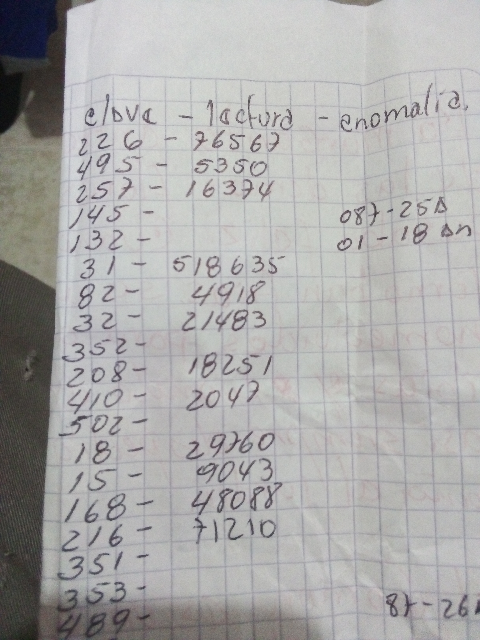 clave - lactura - anomalia.
226 - 76567
495 - 5350
257 - 16374
145 - 087-25A
132 - 01-18 An
31 - 518635
82 - 4918
32 - 21483
352 -
208 - 18251
410 - 2047
502 -
18 - 29760
15 - 9043
168 - 48088
216 - 71210
351 -
353 - 87-26
489 -